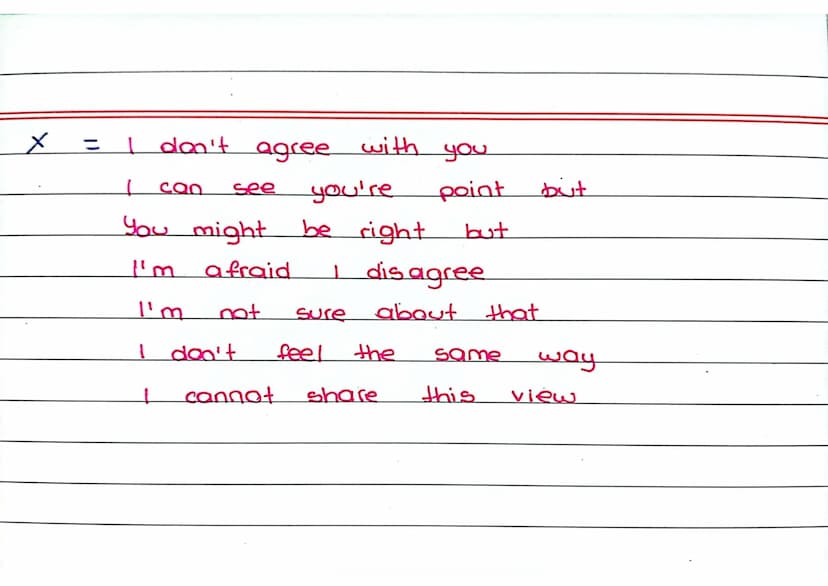 X = I don't agree with you
I can see you're point but
You might be right but
I'm afraid I disagree
I'm not sure about that
I don't feel the same way
I cannot share this view